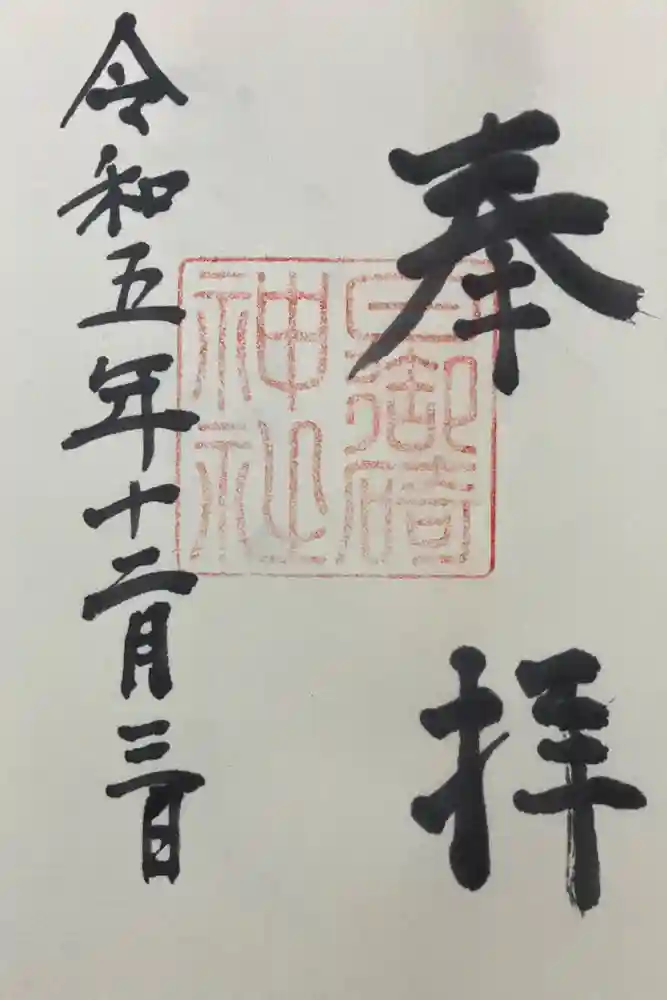 奉拝
日御碕
神社
令和五年十二月三日